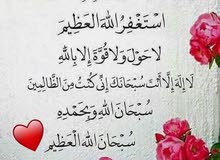 اسْتَغْفِرُ اللهَ الْعَظِيم
لَا حَوْلَ وَلَا قُوَّةَ إِلَّا بِاللهِ
لَا إِلَهَ إِلَّا أَنْتَ سُبْحَانَكَ إِنِّي كُنْتُ مِنَ الظَّالِمِينَ
سُبْحَانَ اللهِ وَبِحَمْدِهِ
سُبْحَانَ اللهِ الْعَظِيمِ